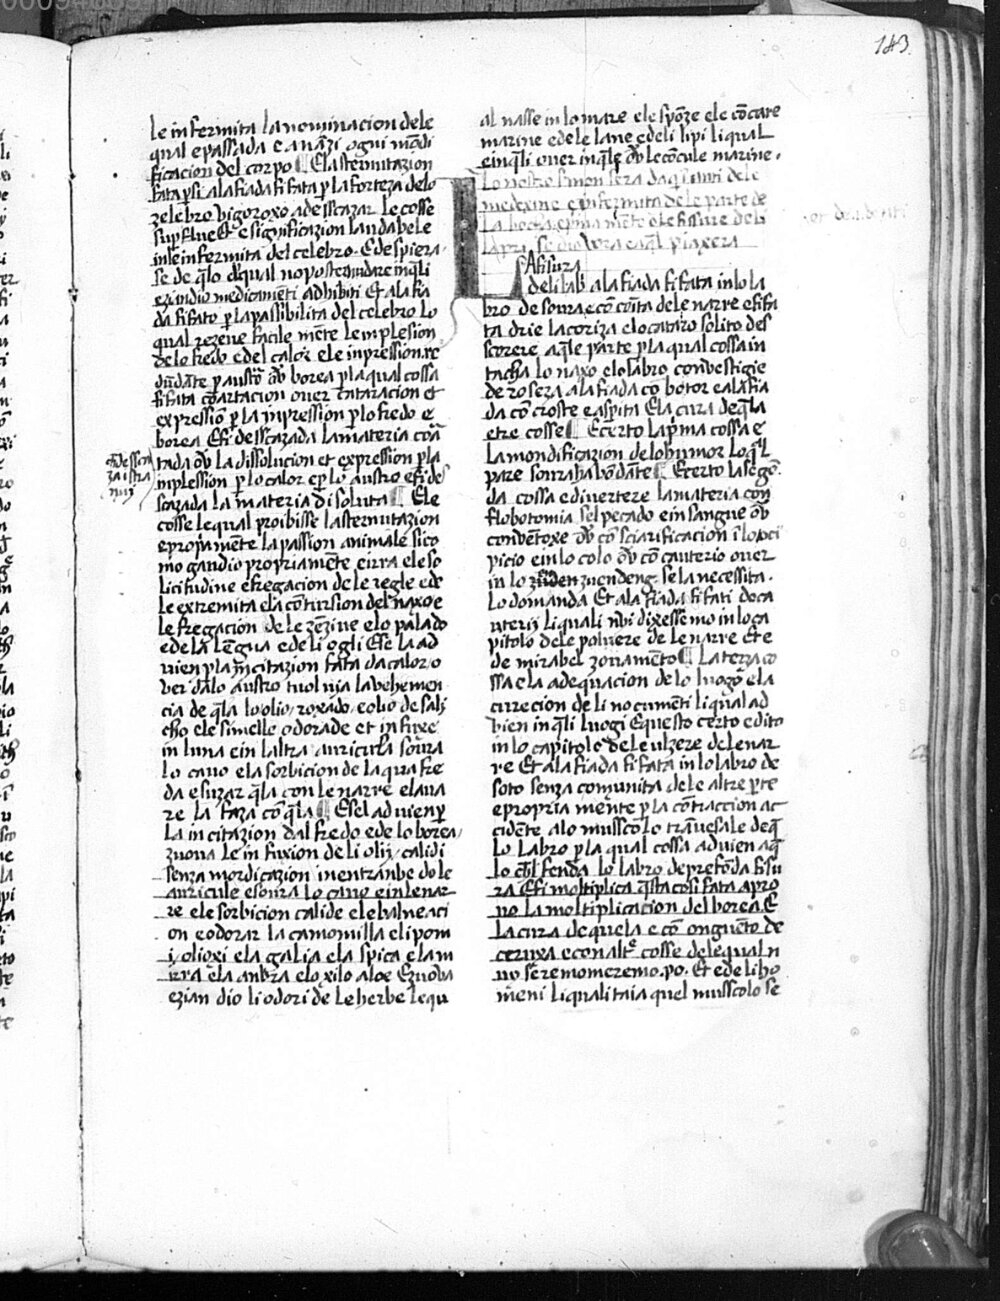 143
le infermita la nominacion dele
qual e passada e avanzi ogni mondi
ficacion del corpo ¶ El a sternutazion
fata psi ala fiada si fata p la forteza delo
zelebro vigoroxo a desscazar le cosse
supflue et e significazion laudabele
inle infermita del celebro. E despiera
se de qlo dl qual no poster andare inqli
ezandio medicamenti adhibiti et ala fia
da si fato p la passibilita del celebro lo
qual rezeve facile mente le implesion
delo fredo e del calor e le inpression re
dundate p austro ov borea p la qual cossa
si fata cpartacion over
expression p la inpression p lo fredo e
borea Esi desscazada la materia coa
tada ov la dissolucion et expression p la
inplession p lo calor e p lo austro esi des
scazada la materia disoluta ¶ Ele
cosse le qual proibisse la sternutazion
e propiamente la passion animale sico
mo gaudio propriamente e ira e le so
licitudine e fregacion dele regle e de
le extremita e la contursion del naxo e
le fregacion dele zenzive e lo palado
e dela lengua e deli ogli E se la ad
vien p la incitazion fata da calor o
ver dalo austro tuol via la vehemen
cia de qla lo olio roxado e olio de salj
cho e le simelle odorade et infuxe
in luna e in laltra auricula soura
lo cavo e la sorbicion de laqua fre
da e suzar qla con le narre e lava
re la faza co qla ¶ E sel advien p
la incitazion dal fredo e de lo borea
zuova le infuxion deli olij calidi
senza mordicazion inentranbe do le
auricule e soura lo cavo e in le nar
re e le sorbicion calide e le balneaci
on e odorar la camomilla e li pom
e la galia e la spica e lam
e la anbra e lo xilo aloe E zuova
ezian dio li odori de le herbe le qu
al nasse in lo mare e le sponze e le concare
marine e dele lane e deli lipi li qual
e in qli over in qle ov le concule marine.
Lo nostro smon sera da qsi anti dele
medexine e infermita dele parte de
la bocha e pma mente dele fissure deli
lapri se dio vora e a ql piaxera
La fisura
deli labri ala fiada si fata in lo la
bro de soura e con conta dele narre e si fa
ta drie la coriza e lo cataro solito des
scorere a qle parte p la qual cossa in
tacha lo naxo e lo labro con vestigie
de rosera ala fiada co botor e ala fia
da con croste e aspita E la cura de qla
etre cosse ¶ E certo la pma cossa e
la mondificazion delo humor lo ql
pare sourahabondate ¶ E certo la segon
da cossa e divertere la materia con
flobotomia sel pecado e in sangue ov
con ventoxe ov con sciarificacion i lo oci
picio e in lo colo ov con cauterio over
in lo se la necessita
lo domanda Et ala fiada si fati do ca
uterij li quali nbi dixessemo in lo ca
pitolo dele polvere de le narre et e
de mirabel zovamento ¶ La terza co
ssa e la adequacion de lo luogo e la
curecion de li nocumenti li qual ad
vien in qli luogi E questo certo e dito
in lo capitolo dele ulzere dele nar
re Et ala fiada si fata in lo labro de
soto senza comunita dele altre pte
e propria mente p la contraccion ac
cidente a lo musscolo travesale de q
lo labro p la qual cossa advien a q
lo chl fenda lo labro de prefonda fisu
ra E si moltiplica qsta cosi fata apro
vo la moltiplicacion del borea E
la cura de quela e con onguento de
ceruxa e con altre cosse dele qual n
uo se rememoremo. po. Et e de li ho
meni li quali taia quel musscolo se